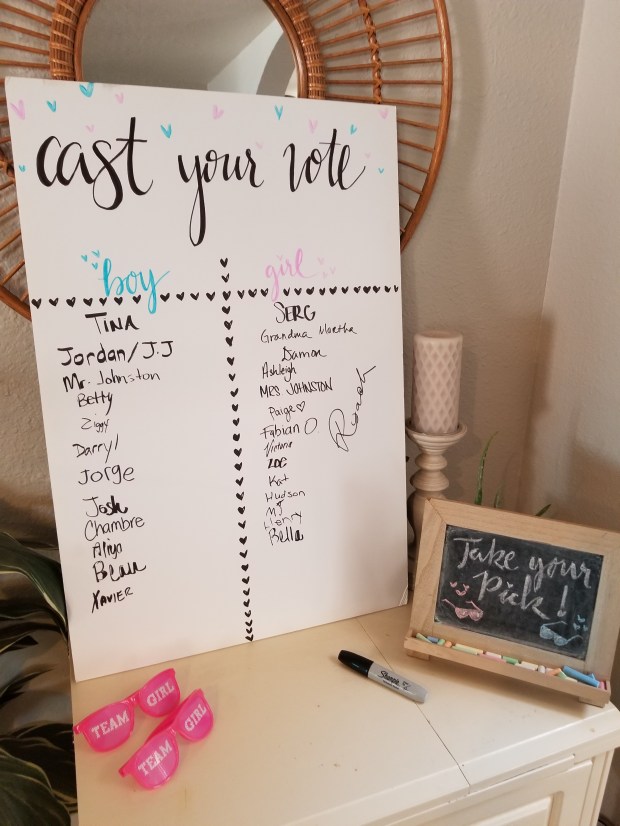 cast your vote
boy
TINA
Jordan/J.J
Mr. Johnston
Betty
Ziggy
Darryl
Jorge
Josh
Chambre
Aliya
Beau
XAVIER
girl
SERG
Grandma Martha
Damon
Ashleigh
MRS. JOHNSTON
Paige
Fabian O
Victoria
ZOE
Kat
Hudson
MJ
Henry
Bella
Take your
Pick!
Sharpie
TEAM GIRL
TEAM GIRL